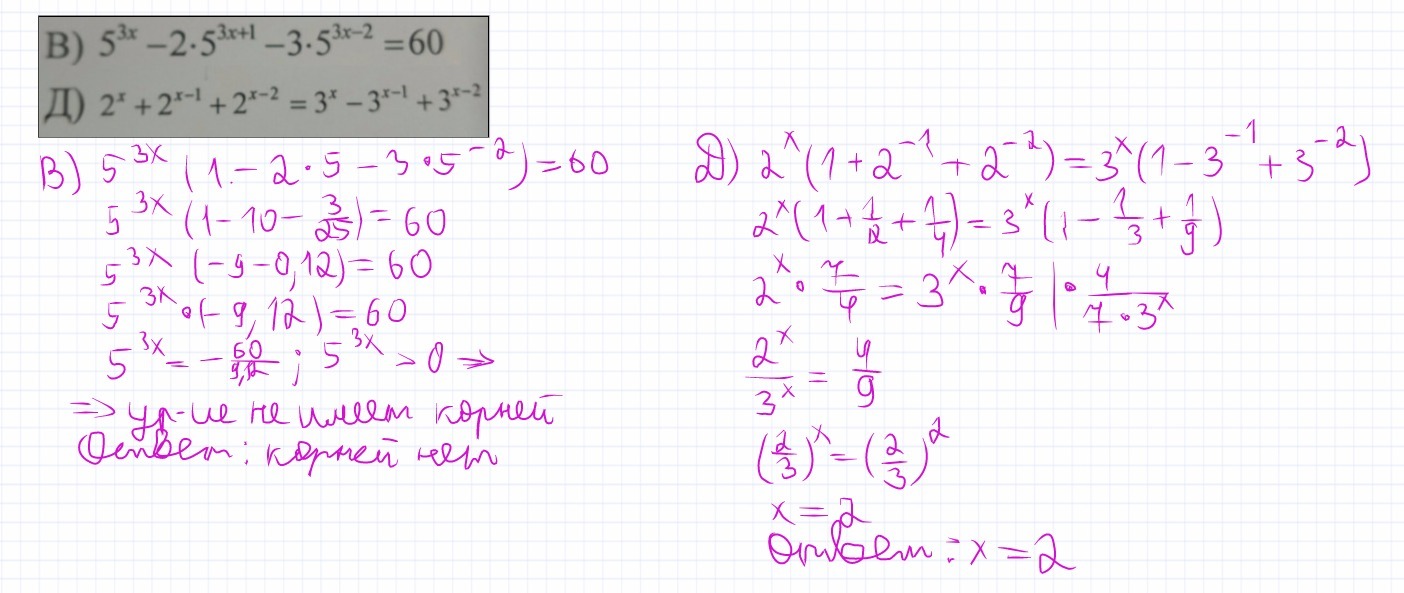 В) 5^{3x} −2·5^{3x+1} −3·5^{3x−2} =60
Д) 2^x +2^{x−1} +2^{x−2} = 3^x −3^{x−1} +3^{x−2}
В) 5^{3x} (1 − 2·5 − 3·5^{−2}) = 60
5^{3x} (1−10− 3/25) = 60
5^{3x} (−9−0,12) = 60
5^{3x} ·(−9,12) = 60
5^{3x} = − 60/9,12 ; 5^{3x} > 0 ⇒
⇒ ур-ие не имеет корней
Ответ: корней нет
Д) 2^x (1+2^{−1}+2^{−2}) = 3^x (1−3^{−1} + 3^{−2})
2^x (1+ 1/2 + 1/4) = 3^x (1− 1/3 + 1/9)
2^x · 7/4 = 3^x · 7/9 | · 4/(7·3^x)
2^x/3^x = 4/9
(2/3)^x = (2/3)^2
x = 2
Ответ: x = 2